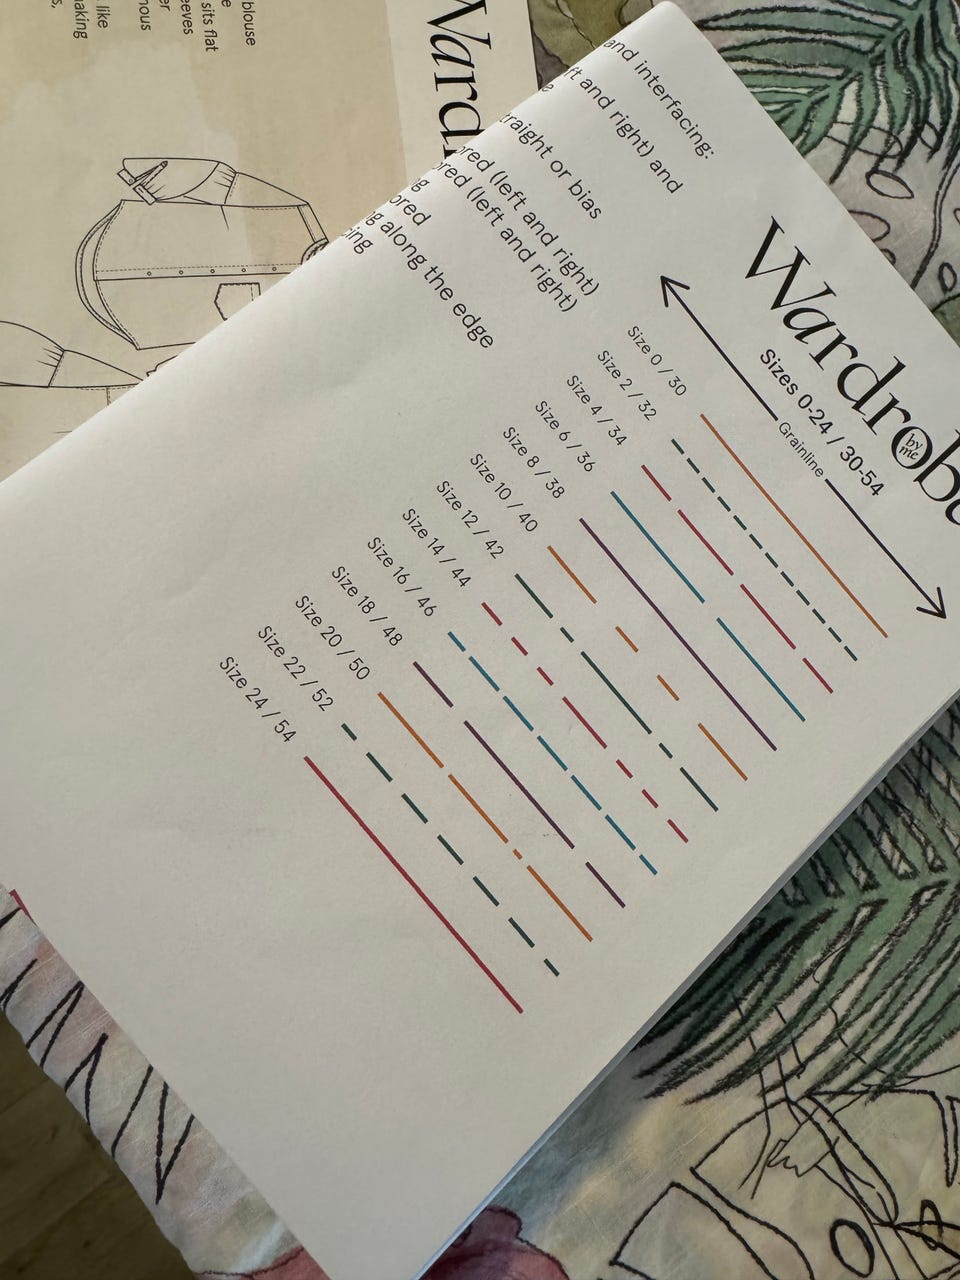 blouse
sits flat
like
Ward
and interfacing:
and right) and
straight or bias
(left and right)
(left and right)
along the edge
Wardrobe
by
mc
Sizes 0-24 / 30-54
Grainline
Size 0 / 30
Size 2 / 32
Size 4 / 34
Size 6 / 36
Size 8 / 38
Size 10 / 40
Size 12 / 42
Size 14 / 44
Size 16 / 46
Size 18 / 48
Size 20 / 50
Size 22 / 52
Size 24 / 54